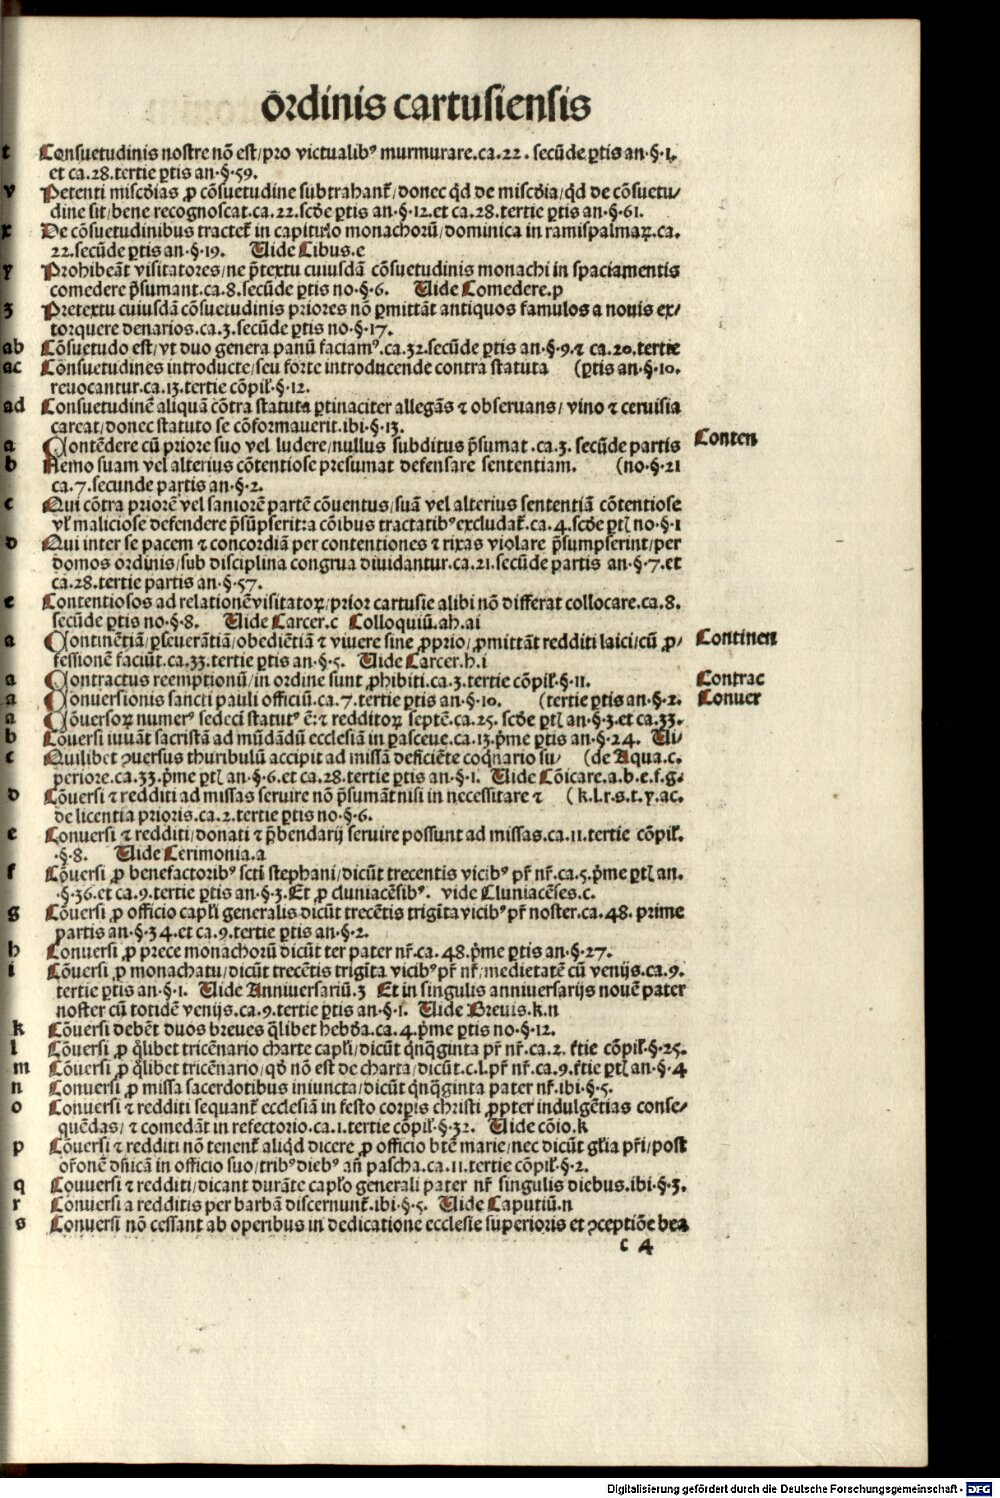 ōrdinis cartusiensis
t Consuetudinis nostre nō est/pro victualibꝰ murmurare.ca.22. secūde ꝑtis an.§.1.
et ca.28.tertie ꝑtis an.§.59.
v Petenti miscōias ꝓ cōsuetudine subtrahanẗ/donec q̇d de miscōia/q̇d de cōsuetu/
dine sit/bene recognoscat.ca.22.scōe ꝑtis an.§.12.et ca.28.tertie ꝑtis an.§.61.
x De cōsuetudinibus tracteẗ in capitulo monachoꝝ/dominica in ramispalmaꝝ.ca.
22.secūde ꝑtis an.§.19. Uide Cibus.e
y Prohibeāt visitatores/ne p̄textu cuiusdā cōsuetudinis monachi in spaciamentis
comedere p̄sumant.ca.8.secūde ꝑtis no.§.6. Uide Comedere.p
z Pretextu cuiusdā cōsuetudinis priores nō ꝑmittāt antiquos famulos a nouis ex/
torquere denarios.ca.3.secūde ꝑtis no.§.17.
ab Cōsuetudo est/vt duo genera panū faciamꝰ.ca.32.secūde ꝑtis an.§.9.⁊ ca.20.tertie
ac Cōnsuetudines introducte/seu forte introducende contra statuta (ꝑtis an.§.10.
reuocantur.ca.13.tertie cōpil'.§.12.
ad Consuetudinē aliquā cōtra statuta ꝑtinaciter allegās ⁊ obseruans/ vino ⁊ ceruisia
careat/donec statuto se cōformauerit.ibi.§.13.
a Contēdere cū priore suo vel ludere/nullus subditus p̄sumat.ca.3. secūde partis Conten
b Nemo suam vel alterius cōtentiose presumat defensare sententiam. (no.§.21
ca.7.secunde partis an.§.2.
c Qui cōtra priorē vel saniorē partē cōuentus/suā vel alterius sententiā cōtentiose
vl' maliciose defendere p̄sūpserit:a cōibus tractatibꝰ excludat̄.ca.4.scōe ꝑtꝭ no.§.1
d Qui inter se pacem ⁊ concordiā per contentiones ⁊ rixas violare p̄sumpserint/per
domos ordinis/sub disciplina congrua diuidantur.ca.21.secūde partis an.§.7.et
ca.28.tertie partis an.§.57.
e Contentiosos ad relationē visitatoꝝ/prior cartusie alibi nō differat collocare.ca.8.
secūde ꝑtis no.§.8. Uide Carcer.c Colloquiū.ah.ai
a Continētiā/ꝑseuerātiā/obediētiā ⁊ viuere sine ꝓprio/ꝓmittāt redditi laici/cū ꝓ/ Continen
fessionē faciūt.ca.33.tertie ꝑtis an.§.5. Uide Carcer.h.i
a Contractus reemptionū/in ordine sunt ꝓhibiti.ca.3.tertie cōpil'.§.11. Contrac
a Conuersionis sancti pauli officiū.ca.7.tertie ꝑtis an.§.10. (tertie ꝑtis an.§.2. Conuer
a Cōuersoꝝ numerꝰ sedeci statutꝰ ē:⁊ redditoꝝ septē.ca.25. scōe ꝑtꝭ an.§.3.et ca.33.
b Cōuersi iuuāt sacristā ad mūdādū ecclesiā in ꝑasceue.ca.13.p̄me ꝑtis an.§.24. Ui/
c Quilibet ꝯuersus thuribulū accipit ad missā deficiēte coq̇nario su/ (de Aqua.c.
periore.ca.33.p̄me ꝑtꝭ an.§.6.et ca.28.tertie ꝑtis an.§.1. Uide Cōicare.a.b.e.f.g.
d Cōuersi ⁊ redditi ad missas seruire nō p̄sumāt nisi in necessitate ⁊ (k.l.r.s.t.y.ac.
de licentia prioris.ca.2.tertie ꝑtis no.§.6.
e Conuersi ⁊ redditi/donati ⁊ p̄bendarij seruire possunt ad missas.ca.11.tertie cōpil'.
.§.8. Uide Cerimonia.a
f Cōuersi ꝓ benefactoribꝰ scti stephani/dicūt trecentis vicibꝰ pr̄ nr̄.ca.5.p̄me ꝑtꝭ an.
.§.36.et ca.9.tertie ꝑtis an.§.3.Et ꝓ cluniacēsibꝰ. vide Cluniacēses.c.
g Cōuersi ꝓ officio capl'i generalis dicūt trecētis trigīta vicibꝰ pr̄ noster.ca.48. prime
partis an.§.34.et ca.9.tertie ꝑtis an.§.2.
h Conuersi ꝓ prece monachorū dicūt ter pater nr̄.ca.48.p̄me ꝑtis an.§.27.
i Cōuersi ꝓ monachatu/dicūt trecētis trigīta vicibꝰ pr̄ nr̄/medietatē cū venijs.ca.9.
tertie ꝑtis an.§.1. Uide Anniuersariū.z Et in singulis anniuersarijs nouē pater
noster cū totidē venijs.ca.9.tertie ꝑtis an.§.1. Uide Breuis.k.n
k Cōuersi debēt duos breues q̇libet hebōa.ca.4.p̄me ꝑtis no.§.12.
l Cōuersi ꝓ q̇libet tricēnario charte capl'i/dicūt q̇nq̇ginta pr̄ nr̄.ca.2. t̄tie cōpil'.§.25.
m Cōuersi ꝓ q̇libet tricēnario/qō nō est de charta/dicūt.c.l.pr̄ nr̄.ca.9.t̄tie ꝑtꝭ an.§.4
n Conuersi ꝓ missa sacerdotibus iniuncta/dicūt q̇nq̇ginta pater nr̄.ibi.§.5.
o Conuersi ⁊ redditi sequant̄ ecclesiā in festo corꝑis christi ꝓpter indulgētias conse/
quēdas/ ⁊ comedāt in refectorio.ca.1.tertie cōpil'.§.32. Uide cōio.k
p Cōuersi ⁊ redditi nō tenent̄ aliq̇d dicere ꝓ officio btē marie/nec dicūt gl'ia pr̄i/post
or̄onē dn̄icā in officio suo/tribꝰ diebꝰ an̄ pascha.ca.11.tertie cōpil'.§.2.
q Couuersi ⁊ redditi/dicant durāte capl'o generali pater nr̄ singulis diebus.ibi.§.3.
r Conuersi a redditis per barbā discernunt̄.ibi.§.5. Uide Caputiū.n
s Conuersi nō cessant ab operibus in dedicatione ecclesie superioris et ꝯceptiōe bea
c 4
Digitalisierung gefördert durch die Deutsche Forschungsgemeinschaft - DFG